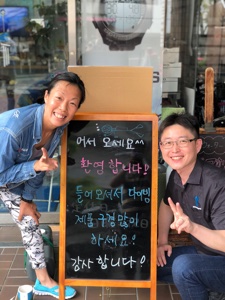 어서 오세요^^
환영 합니다!
들어오셔서 다이빙
제품 구경많이
하세요!
감사 합니다!